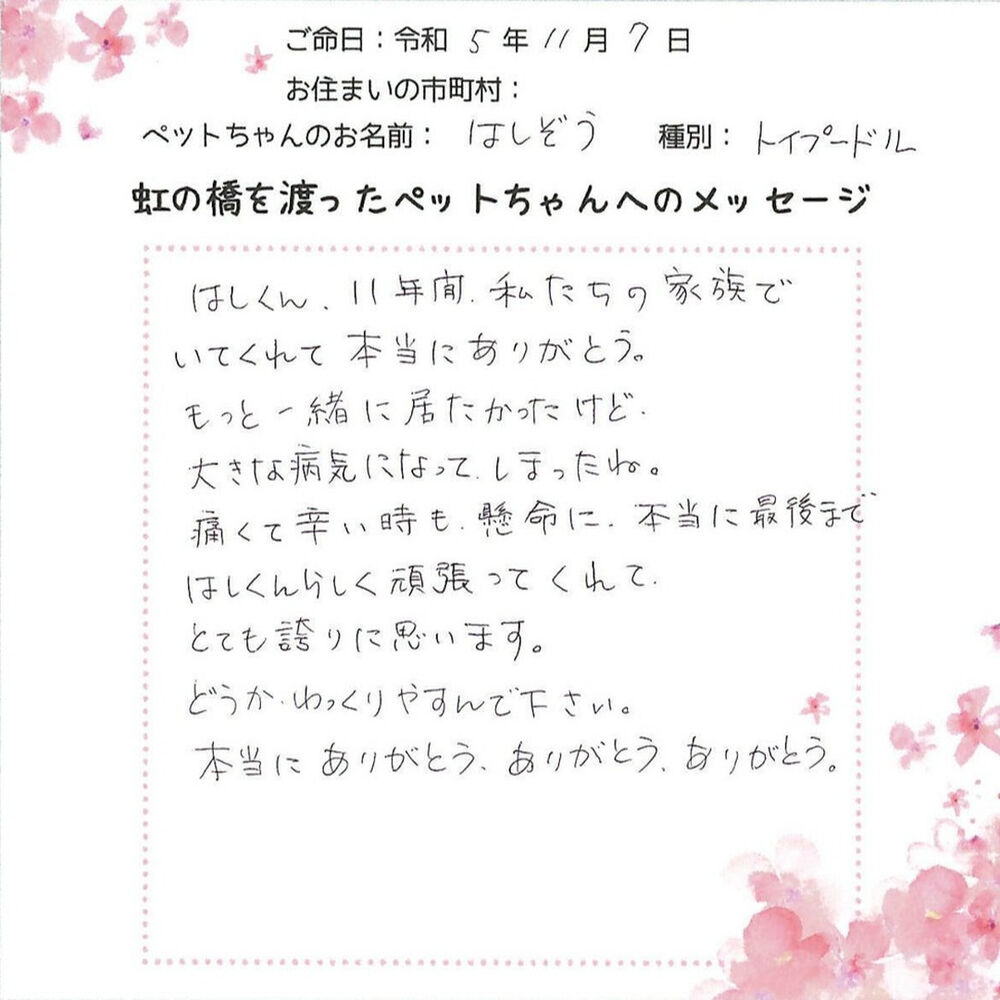 ご命日：令和 5 年 11 月 7 日
お住まいの市町村：
ペットちゃんのお名前： はしぞう 種別： トイプードル
虹の橋を渡ったペットちゃんへのメッセージ
はしくん、11年間、私たちの家族で
いてくれて 本当にありがとう。
もっと一緒に居たかったけど、
大きな病気になって、しまったね。
痛くて辛い時も、懸命に、本当に最後まで
はしくんらしく頑張ってくれて、
とても誇りに思います。
どうか、ゆっくりやすんで下さい。
本当に ありがとう、ありがとう、ありがとう。